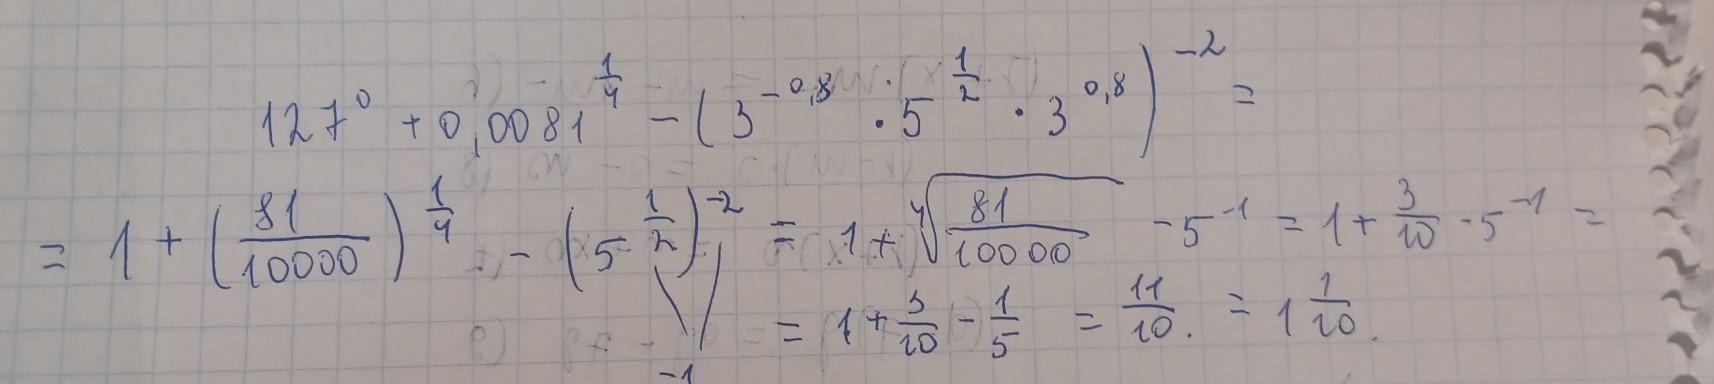 127⁰ + 0,0081^(1/4) − (3^(−0,8) · 5^(1/2) · 3^(0,8))^(−2) =
= 1 + (81/10000)^(1/4) − (5^(1/2))^(−2) = 1 + ⁴√(81/10000) − 5^(−1) = 1 + 3/10 − 5^(−1) =
= 1 + 3/10 − 1/5 = 11/10. = 1 1/10.
−1